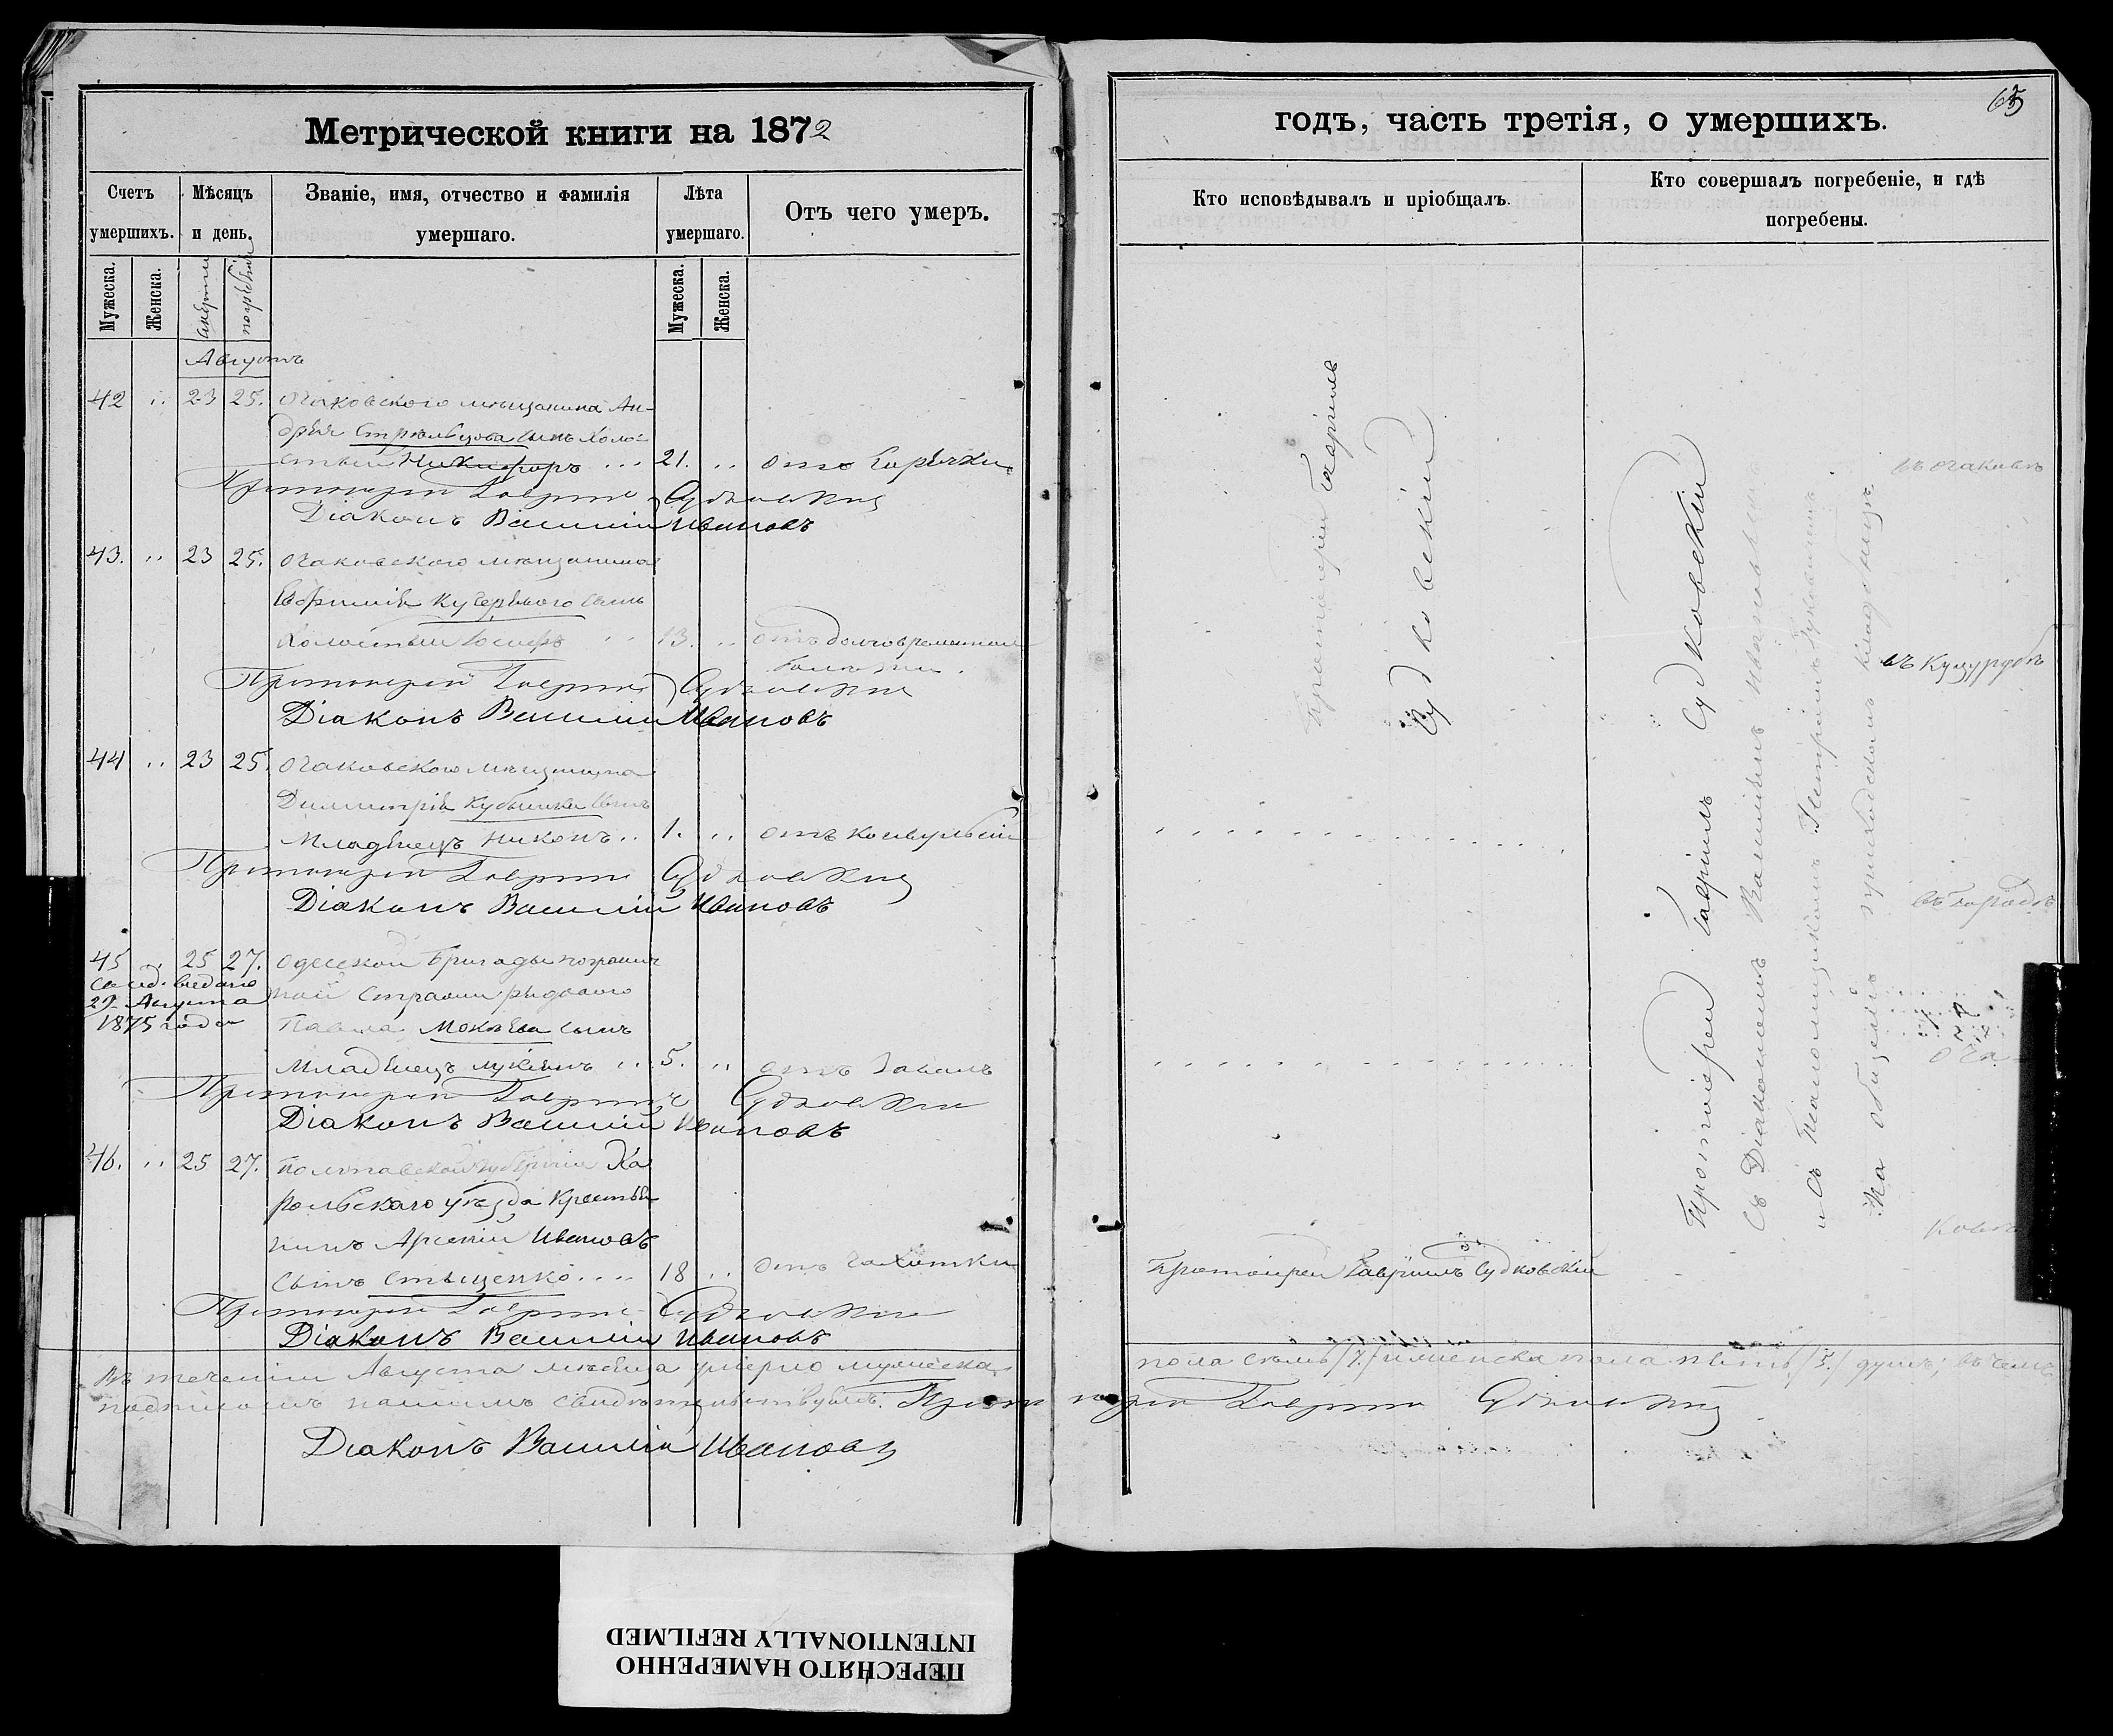 Метрической книги на 1872
Счетъ умершихъ.
Мѣсяцъ и день.
Званіе, имя, отчество и фамилія умершаго.
Лѣта умершаго.
Отъ чего умеръ.
Мужеска.
Женска.
смерти
погребенія
Мужеска.
Женска.
Августъ
42 23 25. Очаковскаго мѣщанина Ан-
дрея Стрельцова сынъ холо-
стый Никифоръ ... 21. отъ горячки
Протоіерей Гавріилъ Судковскій
Діаконъ Василій Ивановъ
43. 23 25. Очаковскаго мѣщанина
Кучерявого сынъ
Холостый Іосифъ 13. отъ долговременной
болезни.
Протоіерей Гавріилъ Судковскій
Діаконъ Василій Ивановъ
44 23 25. Очаковскаго мѣщанина
Димитрія Кубышки сынъ
Младенецъ Никонъ .. 1. отъ конвульсій
Протоіерей Гавріилъ Судковскій
Діаконъ Василій Ивановъ
45 25 27. Одесской бригады погранич
ной стражи рядового
29 Августа
1875 года
Павла Мокѣева сынъ
Младенецъ Лукіянъ .. 5. отъ
Протоіерей Гавріилъ Судковскій
Діаконъ Василій Ивановъ
46. 25 27. Полтавской губерніи Хо
рольскаго уѣзда крестья
нинъ Арсеній Ивановъ
сынъ Стыценко .... 18 отъ чахотки
Протоіерей Гавріилъ Судковскій
Діаконъ Василій Ивановъ
Въ теченіи Августа мѣсяца умерло мужеска
подписомъ нашимъ свидѣтельствуемъ. Прото
Діаконъ Василій Ивановъ
65
годъ, часть третія, о умершихъ.
Кто исповѣдывалъ и пріобщалъ.
Кто совершалъ погребеніе, и гдѣ погребены.
Протоіерей Гавріилъ
Судковскій
Протоіерей Гавріилъ Судковскій
Съ Діакономъ Василіемъ Ивановымъ
и съ Псаломщикомъ
На общемъ приходскомъ кладбищѣ
въ Очаковѣ
въ Куцурубѣ
въ городѣ
Оча-
ковѣ
Протоіерей Гавріилъ Судковскій
пола семь /7./ и женска пола пять /5./ душъ; въ чемъ
іерей Гавріилъ Судковскій
ПЕРЕСНЯТО НАМЕРЕННО
INTENTIONALLY REFILMED